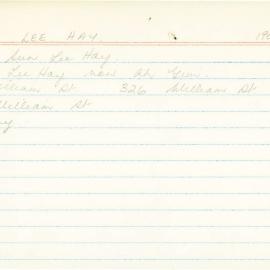 LEE HAY. 190
Sun Lee Hay.
Lee Hay now Ah Gum.
William St 326 William St
William St